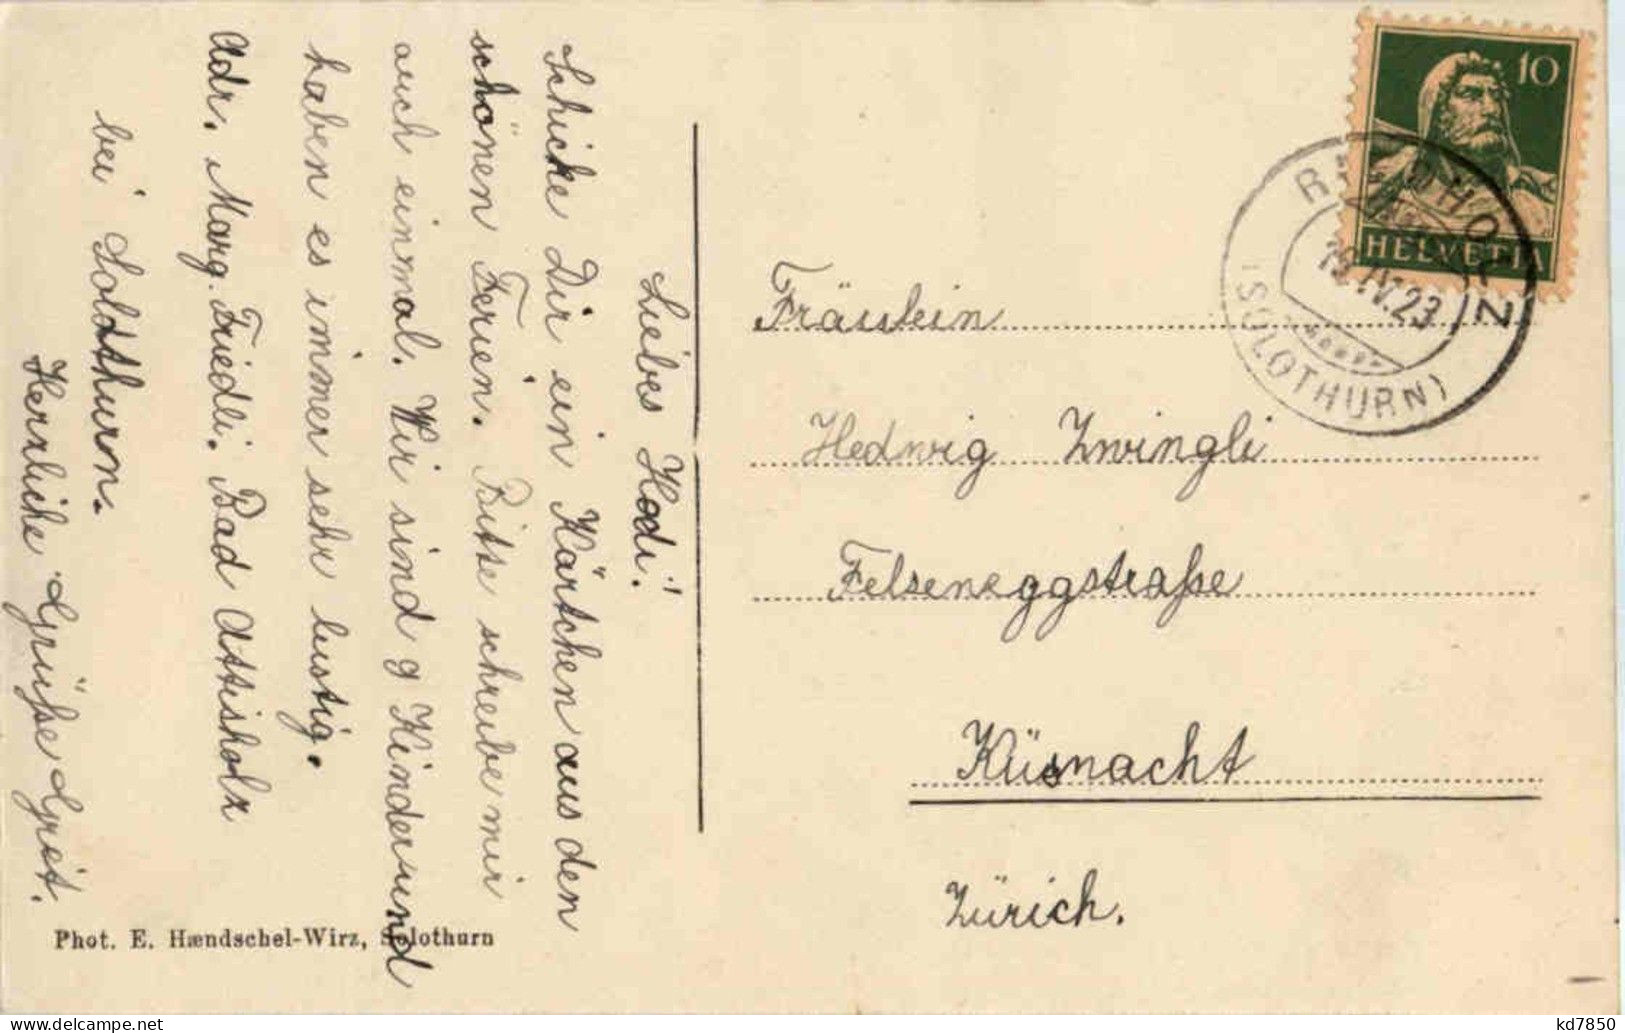 Liebes Hedi!
Schicke Dir ein Kärtchen aus den
schönen Ferien. Bitte schreibe mir
auch einmal. Wir sind 9 Kinder und
haben es immer sehr lustig.
Adr. Marg. Friedli. Bad Attisholz
bei Soldthurn.
Herzliche Grüße Gret.
Phot. E. Hændschel-Wirz, Solothurn
10
HELVETIA
(SOLOTHURN)
IV. 23
Fräulein
Hedwig Zwingli
Felseneggstraße
Küsnacht
Zürich.
kd7850